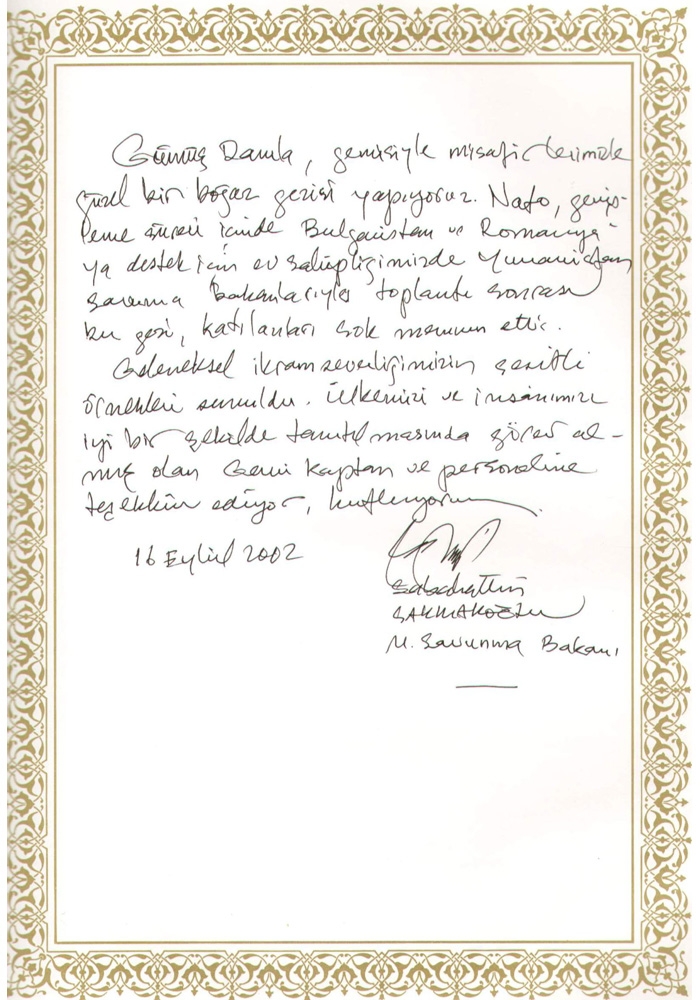 Gümüş Damla, gemisiyle misafirlerimizle
güzel bir boğaz gezisi yapıyoruz. Nato, geniş-
leme süreci içinde Bulgaristan ve Romanya-
ya destek için ev sahipliğimizde Yunanistan
savunma bakanlarıyla toplantı sonrası
bu gezi, katılanları çok memnun etti.
Geleneksel ikramseverliğimizin çeşitli
örnekleri sunuldu. Ülkemizi ve insanımızı
iyi bir şekilde tanıtılmasında görev al-
mış olan Gemi kaptan ve personeline
teşekkür ediyor, kutluyorum.
16 Eylül 2002
Sabahattin
ÇAKMAKOĞLU
M. Savunma Bakanı